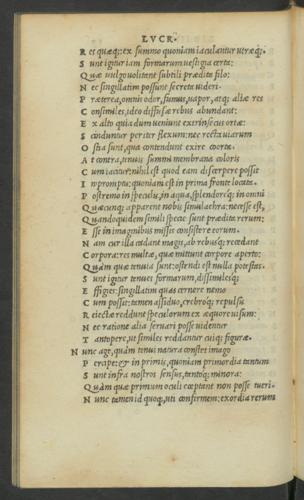 LVCR.
R et quæq; ex summo quoniam iaculantur utræq;.
S unt igitur iam formarum uestigia certa:
Q uæ uulgo uolitent subtili prædita filo:
N ec singillatim possunt secreta uideri.
P ræterea, omnis odor, fumus, uapor, atq; aliæ res
C onsimiles, ideo diffusæ rebus abundant:
E x alto quia dum ueniunt extrinsecus ortæ:
S cinduntur per iter flexum: nec recta uiarum
O stia sunt, qua contendunt exire coortæ.
A t contra, tenuis summi membrana coloris
C um iacitur: nihil est quod eam discerpere possit
I n promptu: quoniam est in prima fronte locata.
P ostremo in speculis, in aqua, splendoreq; in omni
Q uæcunq; apparent nobis simulachra: necesse est,
Q uandoquidem simili specie sunt prædita rerum;
E sse in imaginibus missis consistere eorum.
N am cur illa cadant magis, ab rebusq; recedant
C orpora: res multæ, quæ mittunt corpore aperto:
Q uàm quæ tenuia sunt: ostendi est nulla potestas.
S unt igitur tenues formarum, dissimilesq;
E ffigiæ: singillatim quas cernere nemo
C um possit: tamen assiduo, crebroq; repulsu
R eiectæ reddunt speculorum ex æquore uisum:
N ec ratione alia seruari posse uidentur
T antopere, ut similes reddantur cuiq; figuræ.
N unc age, quàm tenui natura constet imago
P ercipe: et in primis, quoniam primordia tantum
S unt infra nostros sensus, tantoq; minora:
Q uàm quæ primum oculi cœptant non posse tueri.
N unc tamen id quoq; uti confirmem: exordia rerum